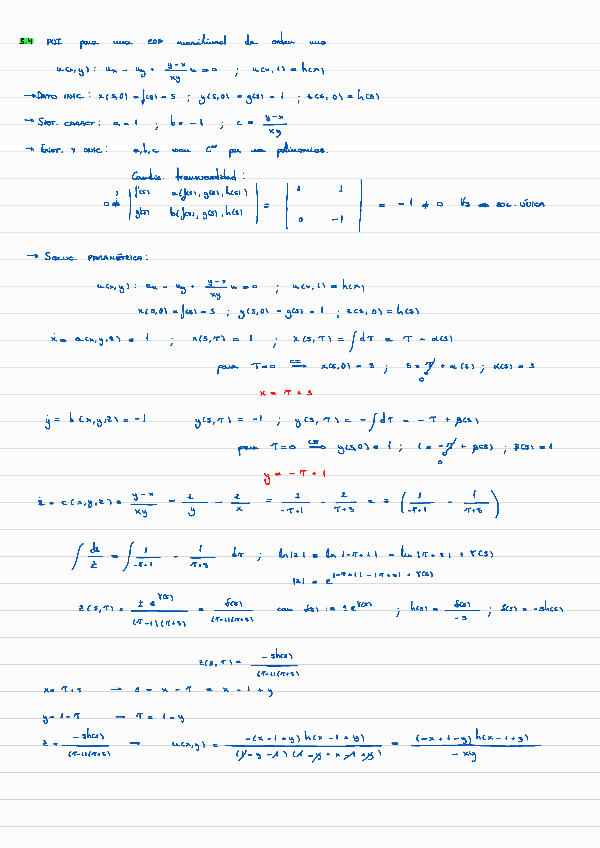 5.4 PVI para una EDP cuasilineal de orden uno
u(x,y): ux - uy + (y-x)/(xy) u = 0 ; u(x,1) = h(x)
→ DATO INIC: x(s,0) = f(s) = s ; y(s,0) = g(s) = 1 ; z(s,0) = h(s)
→ SIST. CARACT: a = 1 ; b = -1 ; c = (y-x)/(xy)
→ EXIST. Y UNIC: a,b,c son C∞ por ser polinomios.
Condic. transversalidad:
0 ≠ | f'(s) a(f(s), g(s), h(s)) | = | 1 1 | = -1 ≠ 0 ∀s ⇒ SOL. ÚNICA
| g'(s) b(f(s), g(s), h(s)) | | 0 -1 |
→ SOLUC. PARAMÉTRICA:
u(x,y): ux - uy + (y-x)/(xy) u = 0 ; u(x,1) = h(x)
x(s,0) = f(s) = s ; y(s,0) = g(s) = 1 ; z(s,0) = h(s)
ẋ = a(x,y,z) = 1 ; ẋ(s,τ) = 1 ; x(s,τ) = ∫dτ = τ + α(s)
para τ=0 ⟹ x(s,0) = s ; s = τ + α(s) ; α(s) = s
0
x = τ + s
ẏ = b(x,y,z) = -1 ẏ(s,τ) = -1 ; y(s,τ) = -∫dτ = -τ + β(s)
para τ=0 ⟹ y(s,0) = 1 ; 1 = -τ + β(s) ; β(s) = 1
0
y = -τ + 1
ż = c(x,y,z) = (y-x)/(xy) = z/y - z/x = z/(-τ+1) - z/(τ+s) = z (1/(-τ+1) - 1/(τ+s))
∫ dz/z = ∫ 1/(-τ+1) - 1/(τ+s) dτ ; ln|z| = ln|-τ+1| - ln|τ+s| + γ(s)
|z| = e^(|-τ+1| - |τ+s| + γ(s))
z(s,τ) = ± e^γ(s)/((τ-1)(τ+s)) = δ(s)/((τ-1)(τ+s)) con δ(s) := ± e^γ(s) ; h(s) = δ(s)/(-s) ; δ(s) = -sh(s)
z(s,τ) = -sh(s)/((τ-1)(τ+s))
x = τ + s → s = x - τ = x - 1 + y
y = 1 - τ → τ = 1 - y
z = -sh(s)/((τ-1)(τ+s)) → u(x,y) = -(x-1+y) h(x-1+y)/((1-y-1)(1-y+x-1+y)) = (-x+1-y) h(x-1+y)/(-xy)